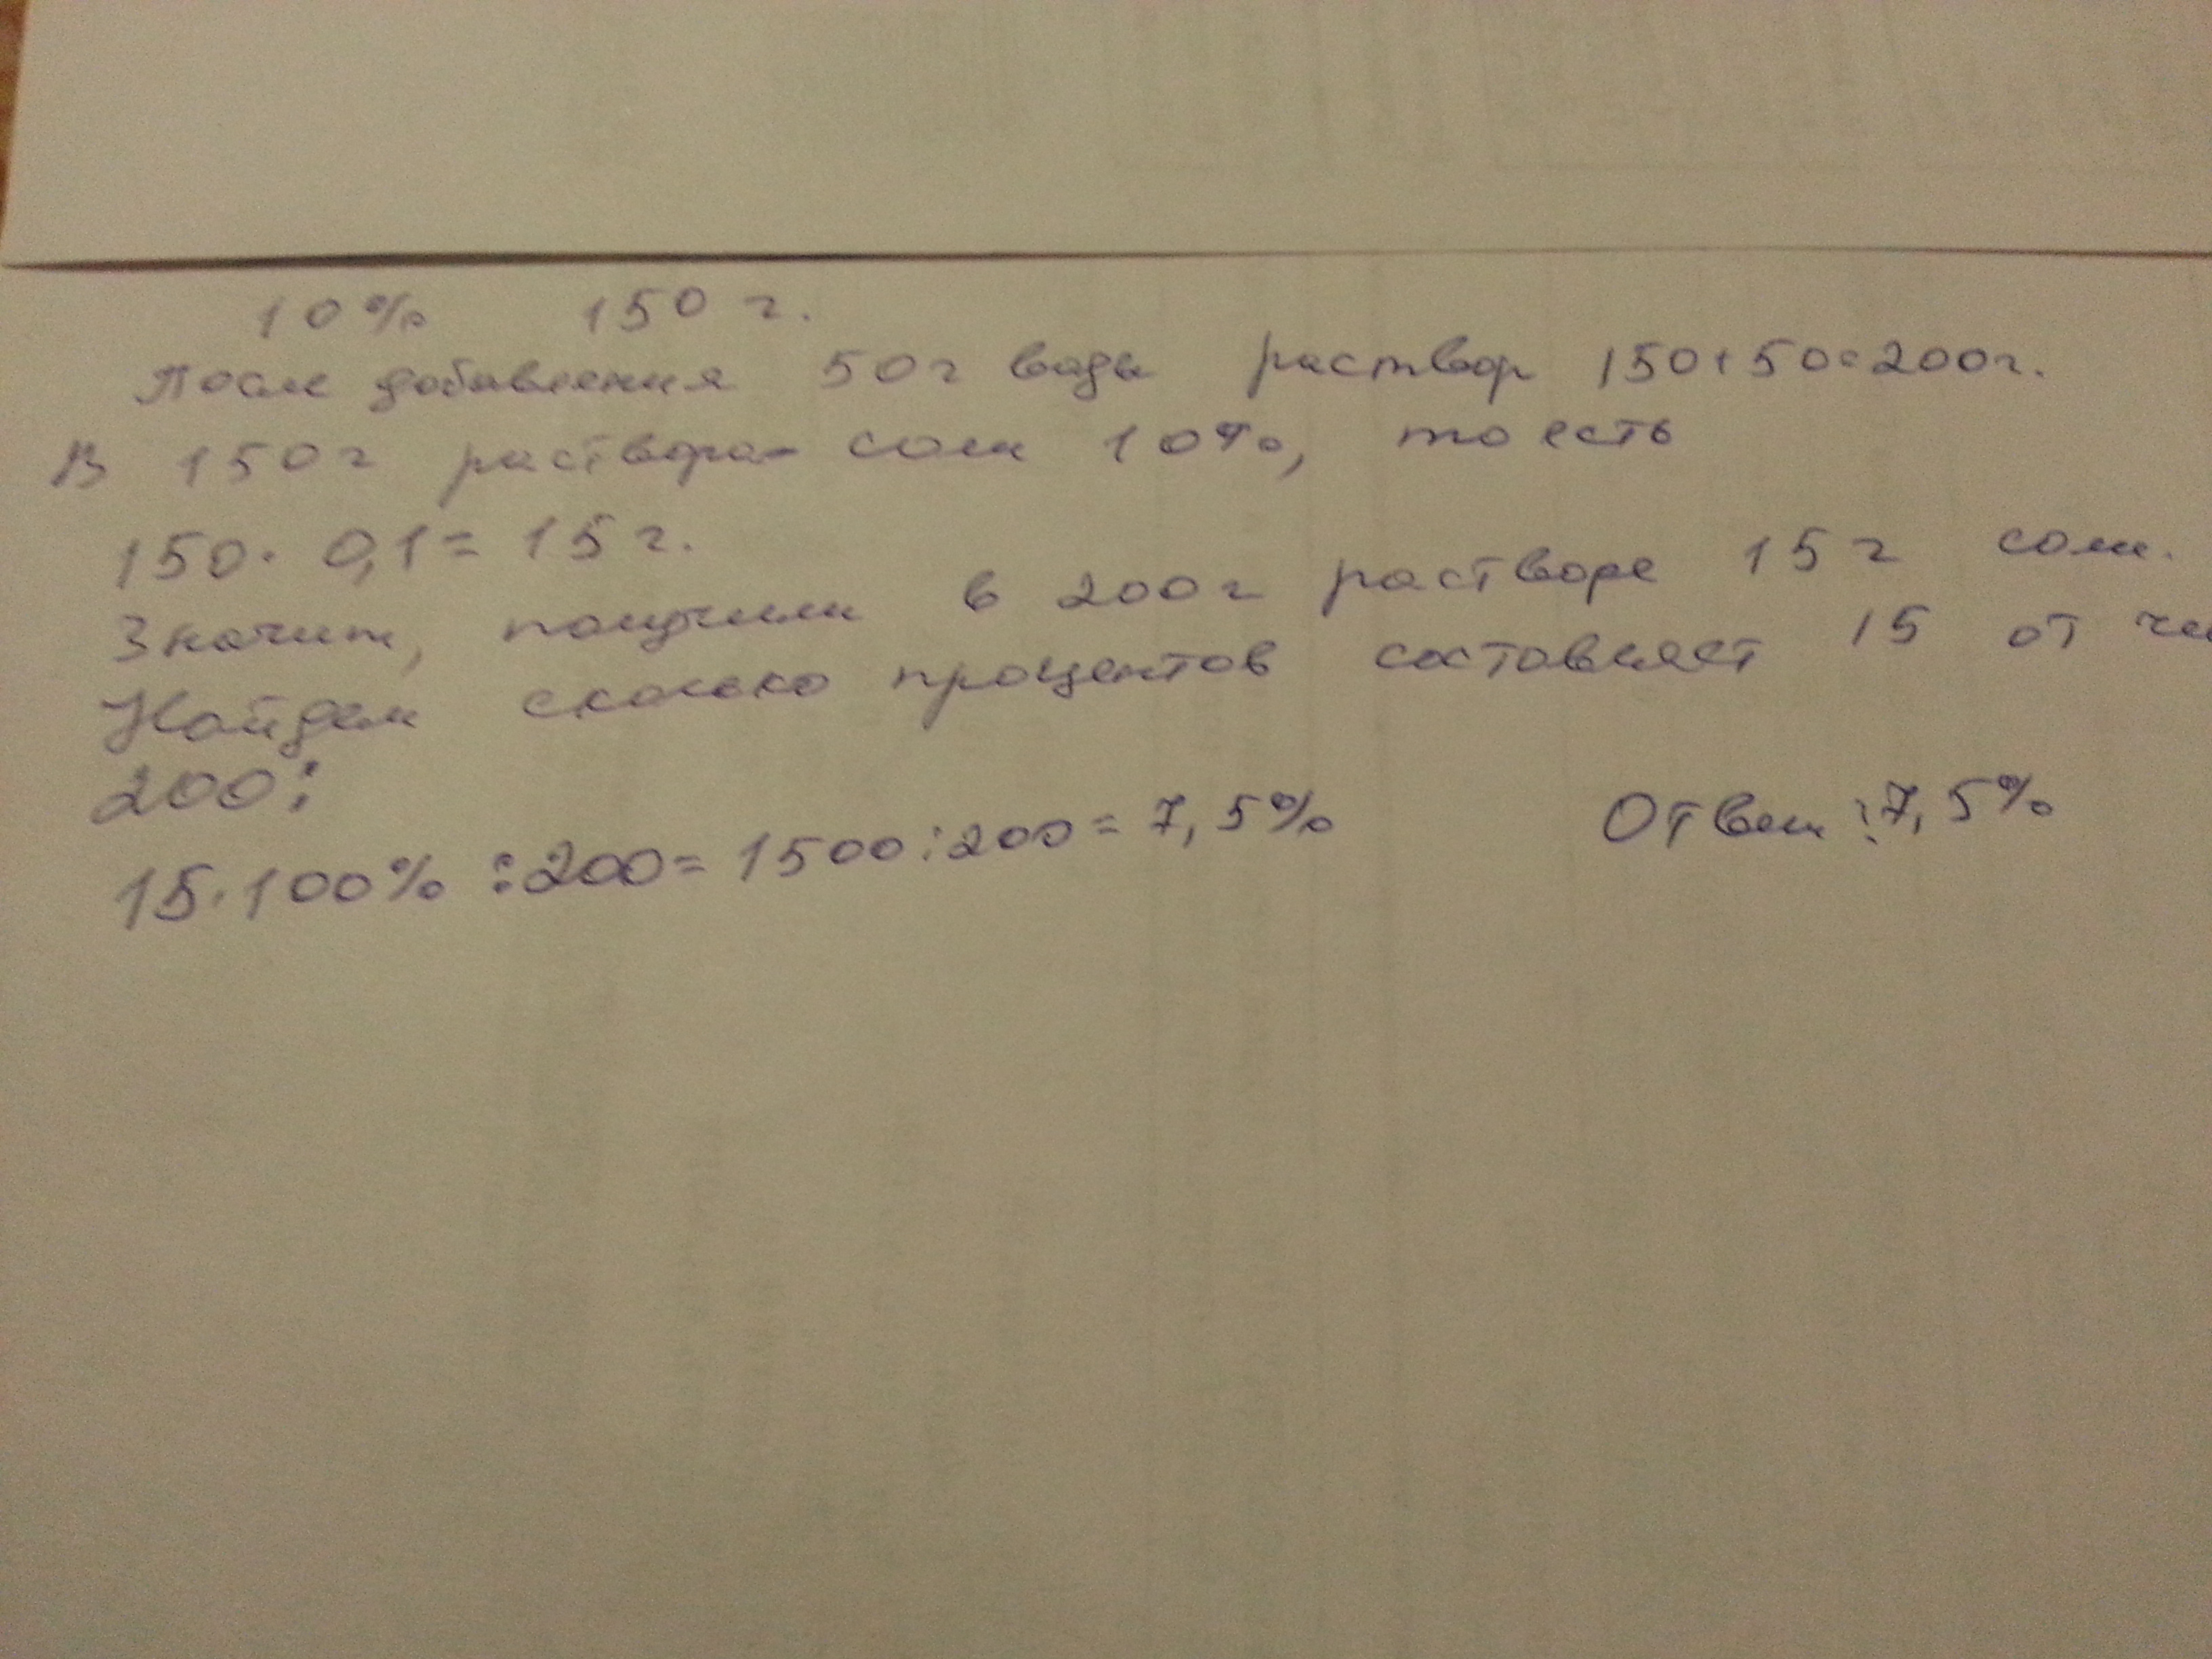 10% 150 г.
После добавления 50 г воды раствор 150+50=200г.
В 150г раствора соли 10%, то есть
150 · 0,1 = 15 г.
Значит, получили в 200г растворе 15 г соли.
Найдем сколько процентов составляет 15 от
200:
15·100% :200= 1500:200= 7,5% Ответ: 7,5%